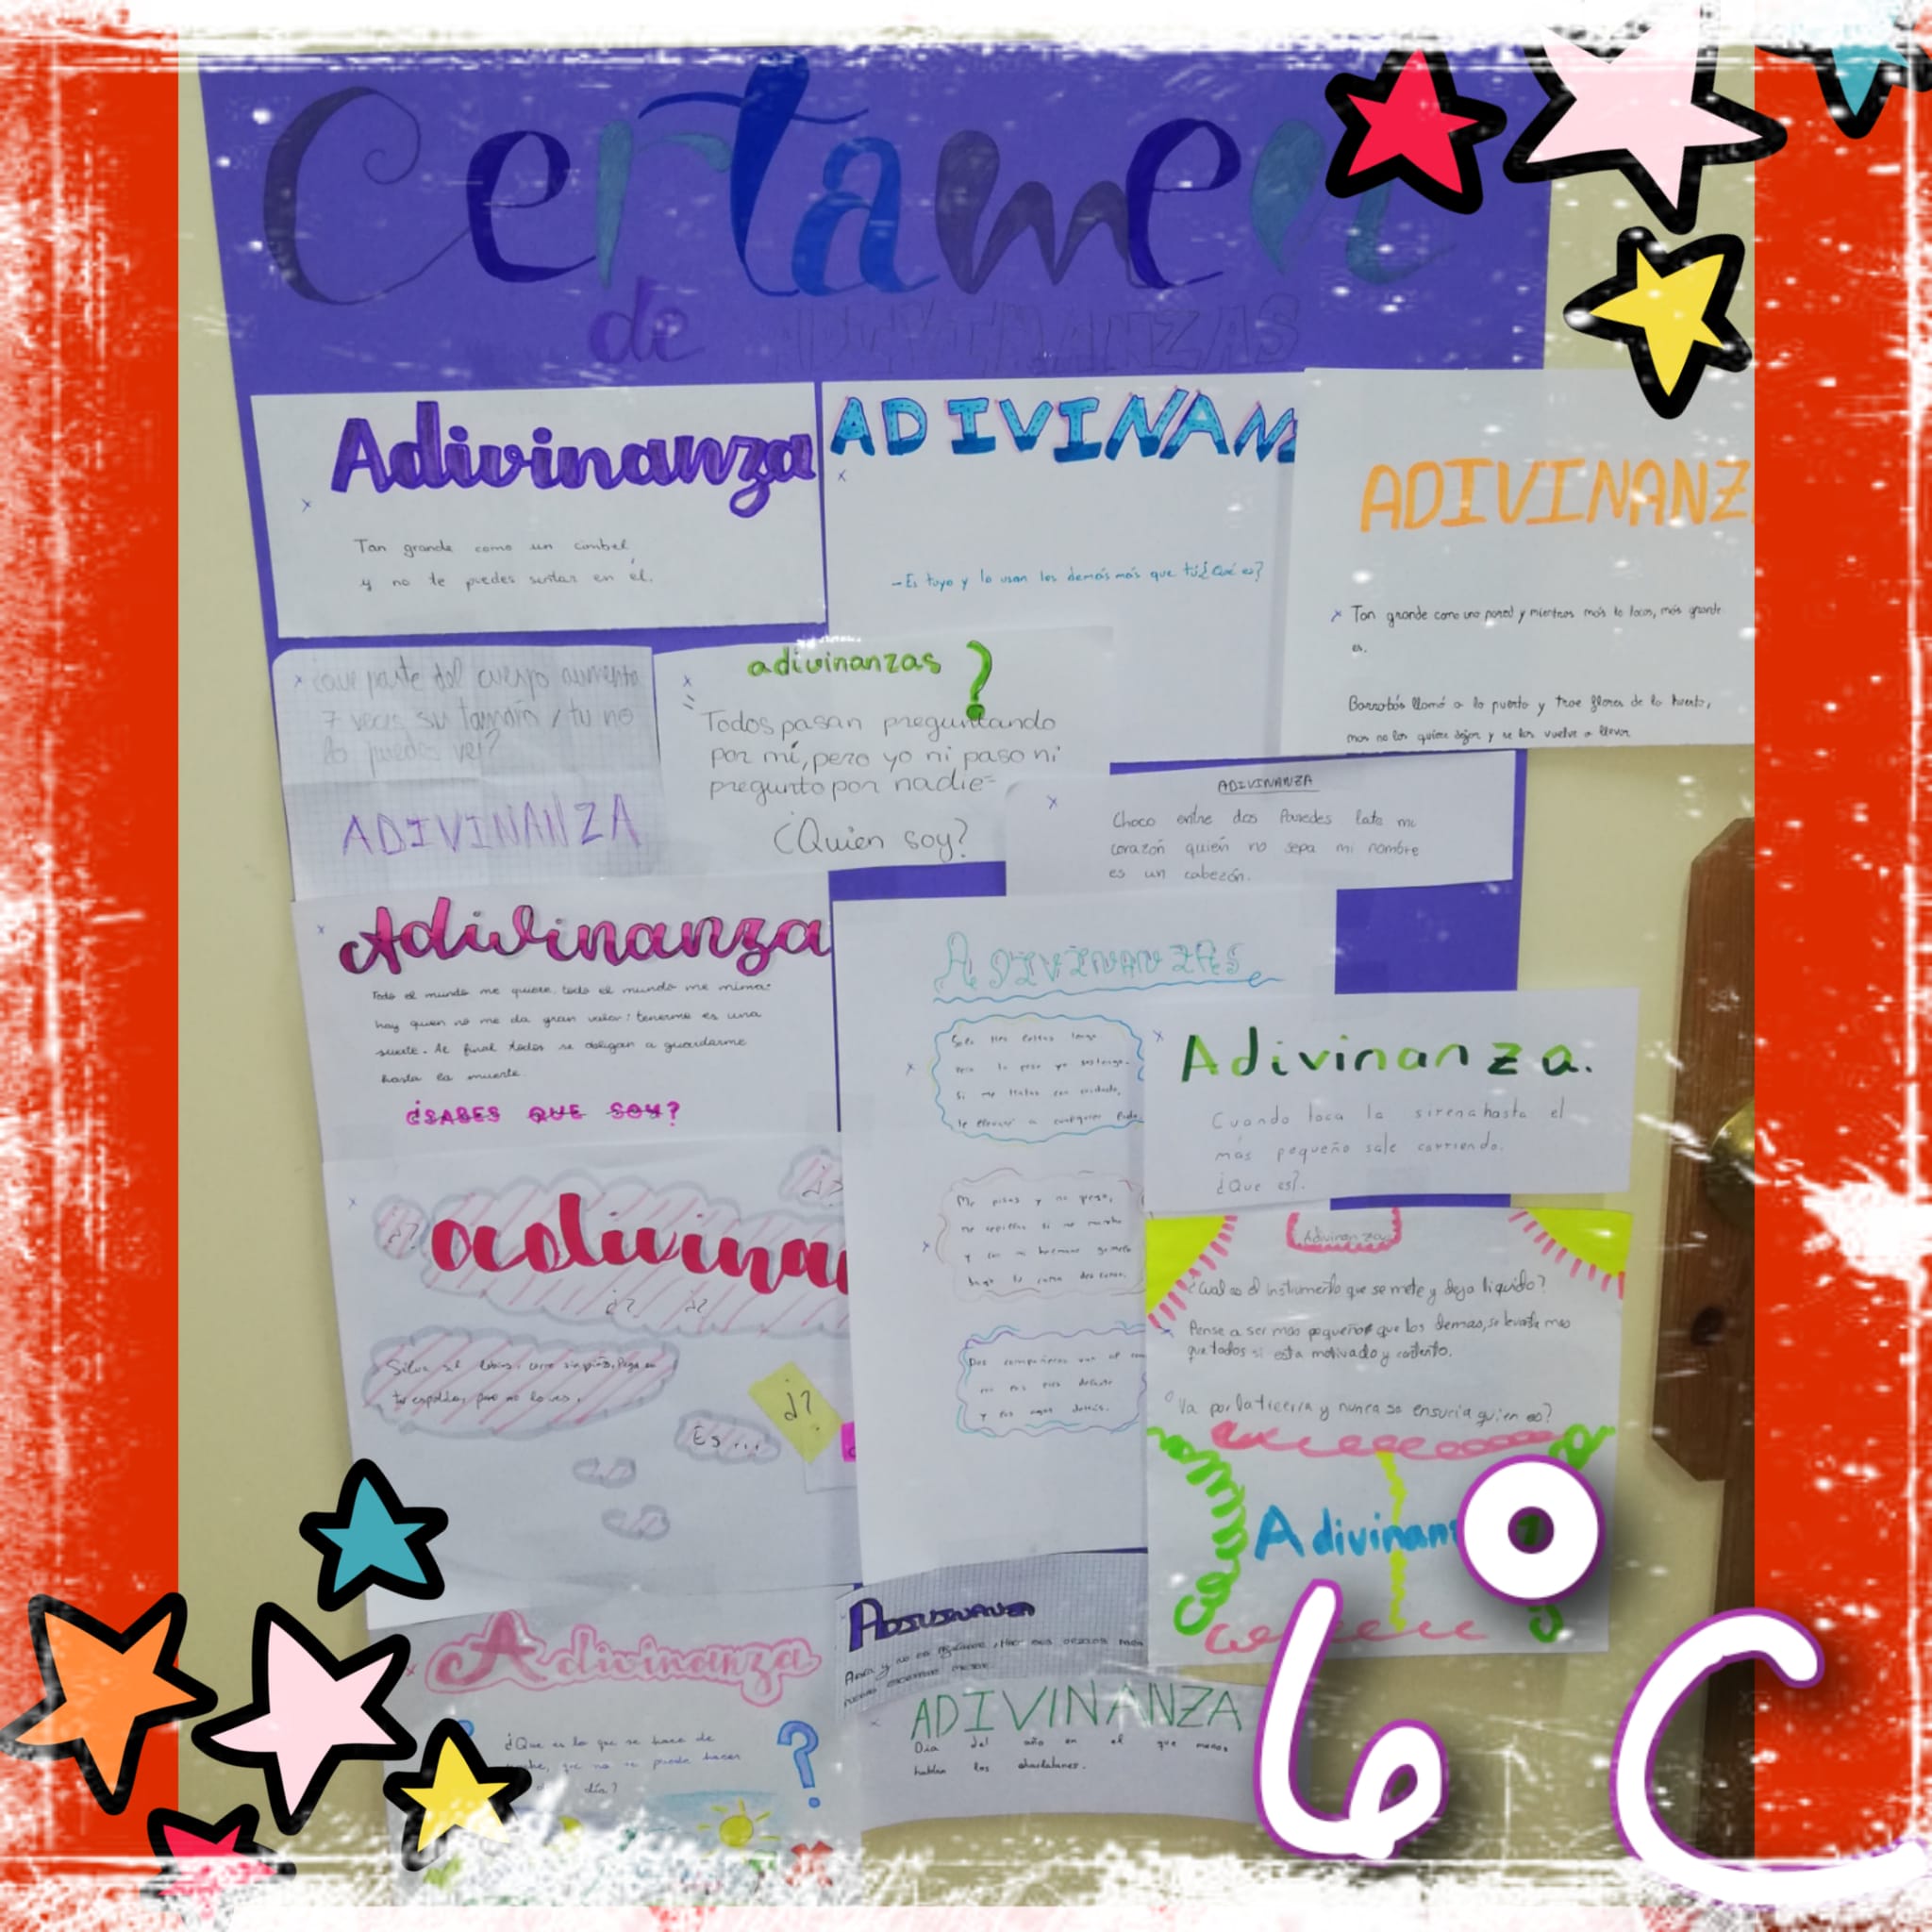 Certamen
de ADIVINANZAS
Adivinanza
Tan grande como un cimbel
y no te puedes sentar en él.
ADIVINANZ
-Es tuyo y lo usan los demás más que tú ¿Qué es?
ADIVINANZ
Tan grande como una pared y mientras más le tocas, más grande
es.
Barrabás llamó a la puerta y trae flores de la huerta,
mas no las quiere dejar y se las vuelve a llevar.
¿Que parte del cuerpo aumenta
7 veces su tamaño y tu no
lo puedes ver?
ADIVINANZA
adivinanzas ?
Todos pasan preguntando
por mí, pero yo ni paso ni
pregunto por nadie-
¿Quien soy?
ADIVINANZA
Choco entre dos Paredes late mi
corazón quién no sepa mi nombre
es un cabezón.
Adivinanza
Todo el mundo me quiere, todo el mundo me mima.
hay quien no me da gran valor: tenerme es una
suerte. Al final todos se obligan a guardarme
hasta la muerte.
¿SABES QUE SOY?
ADIVINANZAS
Solo tres letras tengo
pero tu peso yo sostengo.
Si me tratas con cuidado,
te llevaré a cualquier lado.
Me pisas y no grito,
me cepillas si me mancho
y con mi hermano gemelo
hago la cama descanso.
Dos compañeros van al
y los aguas detrás.
Adivinanza.
Cuando toca la sirena hasta el
más pequeño sale corriendo.
¿Que es?.
¿?
adivina
¿? ¿?
Silva sin labios, corre sin pies, Pega en
tu espalda, pero no lo ves.
¿?
Es...
Adivinanzas
¿Cual es el instrumento que se mete y deja liquido?
Pense a ser mas pequeño que los demas, se levanta mas
que todos si esta motivado y contento.
Va por la tierra y nunca se ensucia quien es?
Adivinan
Adivinanza
¿Que es lo que se hace de
noche, que no se puede hacer
de día?
?
ADIVINANZA
ADIVINANZA
Dia del año en el que menos
hablan los charlatanes.
6º C